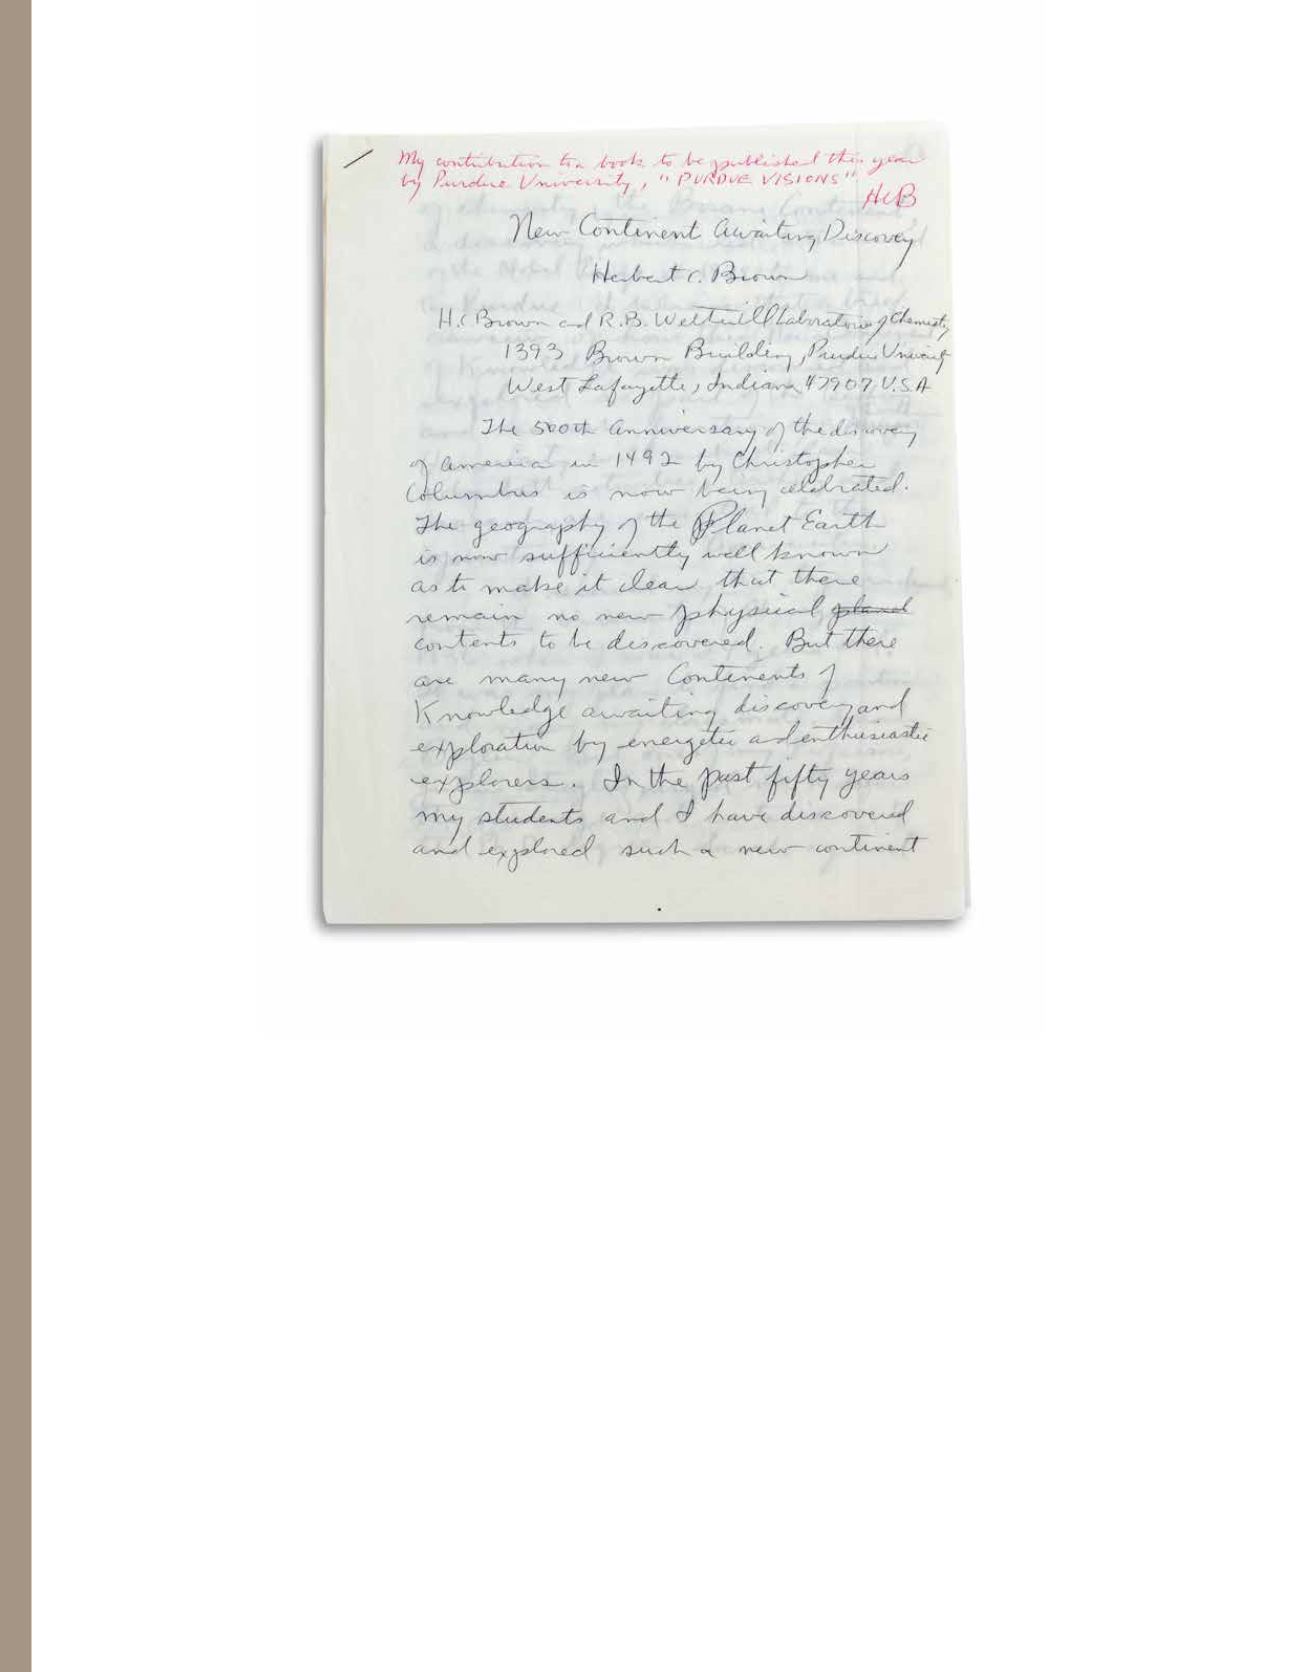 My contribution to a book to be published this year
by Purdue University, "PURDUE VISIONS"
HCB
New Continent Awaiting Discovery
Herbert C. Brown
H.C Brown and R.B. Wetherill Laboratories of Chemistry
1393 Brown Building, Purdue University
West Lafayette, Indiana 47907 U.S.A
The 500th Anniversary of the discovery
of America in 1492 by Christopher
Columbus is now being celebrated.
The geography of the Planet Earth
is now sufficiently well known
as to make it clear that there
remain no new physical
contents to be discovered. But there
are many new Continents of
Knowledge awaiting discovery and
exploration by energetic and enthusiastic
explorers. In the past fifty years
my students and I have discovered
and explored such a new continent